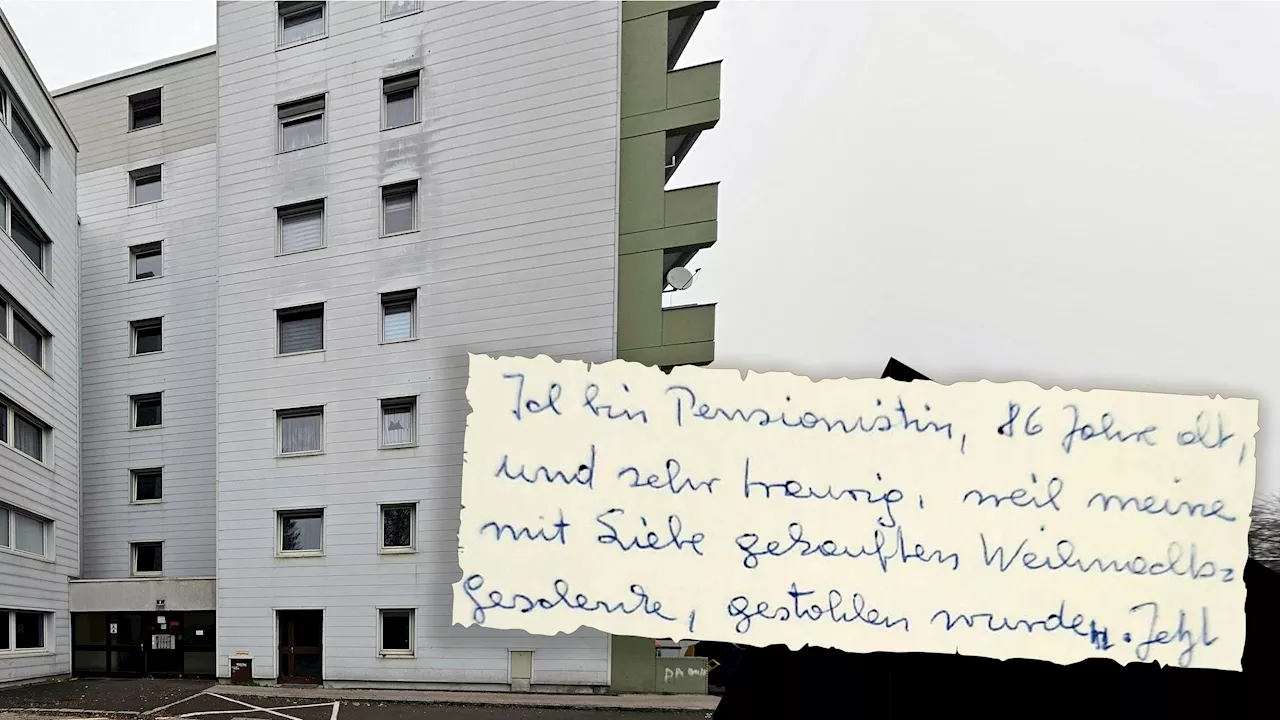 Ich bin Pensionistin, 86 Jahre alt,
und sehr traurig, weil meine
mit Liebe gekauften Weihnachts=
Geschenke, gestohlen wurden. Jetzt